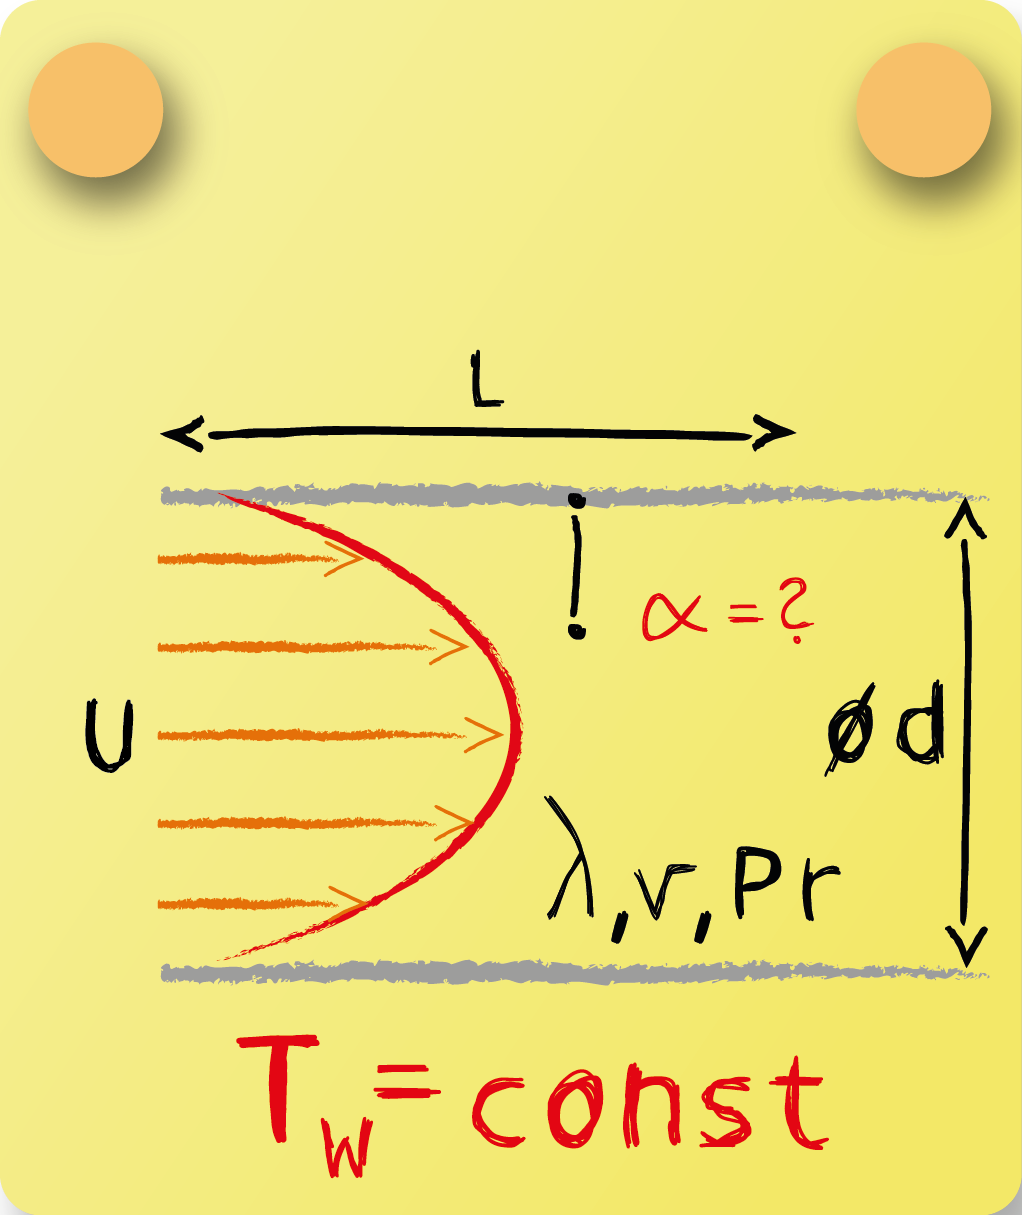 L
α = ?
U
ød
λ,ν,Pr
Tw=const